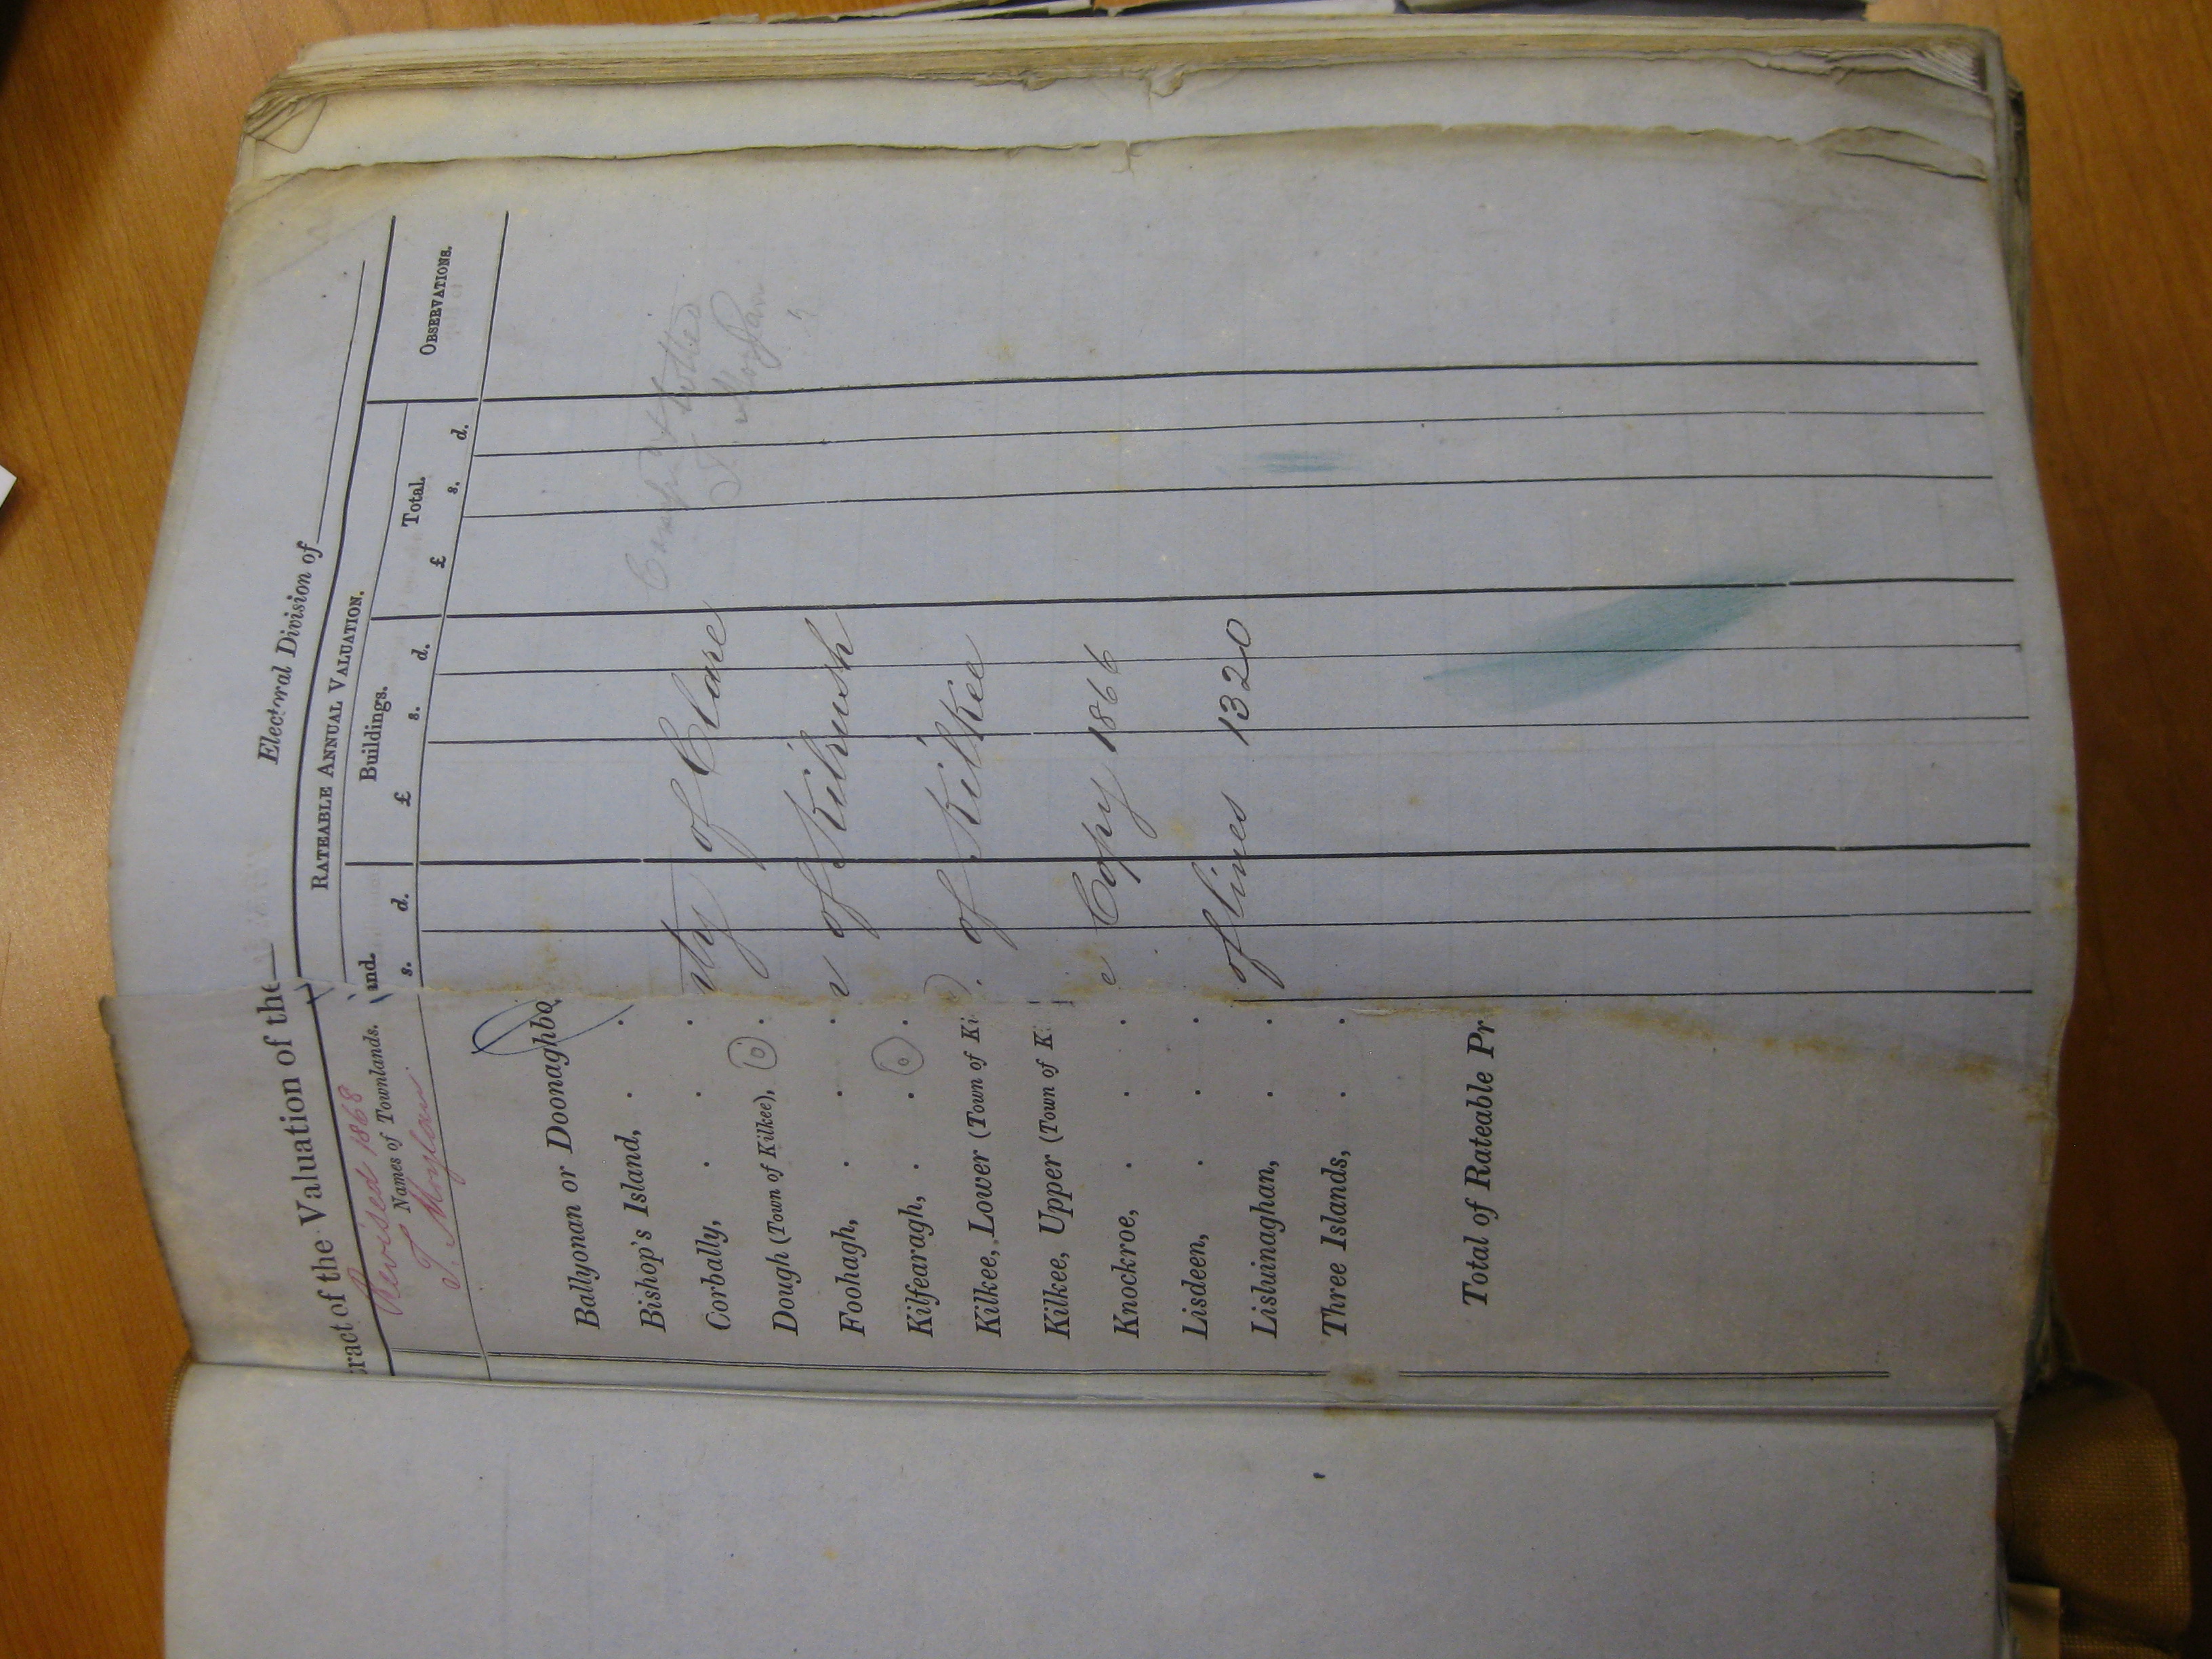 ract of the Valuation of the
Electoral Division of
Revised 1868
T. Moylan
Names of Townlands.
RATEABLE ANNUAL VALUATION.
and.
Buildings.
Total.
OBSERVATIONS.
s. d. £ s. d. £ s. d.
Ballyonan or Doonaghbo
Bishop's Island,
Corbally,
Dough (Town of Kilkee),
Foohagh,
Kilfearagh,
Kilkee, Lower (Town of Ki
Kilkee, Upper (Town of K
Knockroe,
Lisdeen,
Lisluinaghan,
Three Islands,
Total of Rateable Pr
nty of Clare
n of Kilrush
of Kilkee
e Copy 1866
of lines 1320
T. Moylan